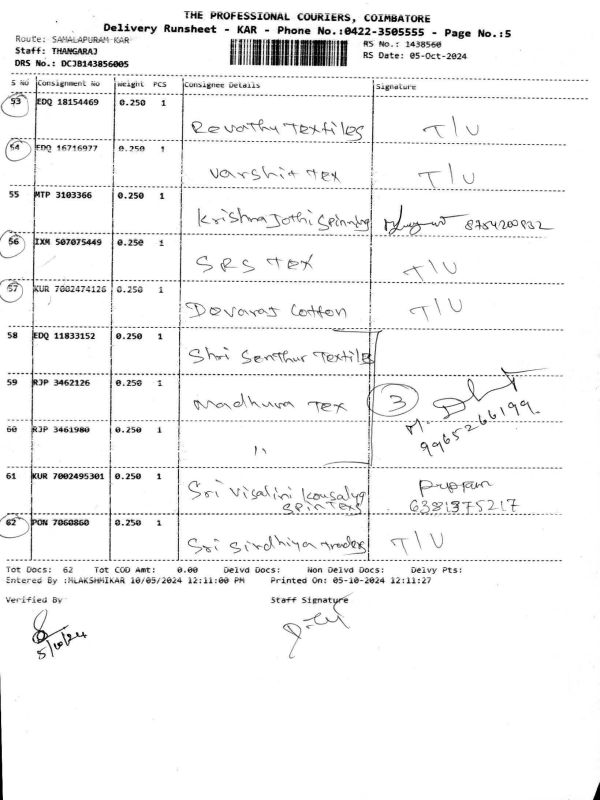 THE PROFESSIONAL COURIERS, COIMBATORE
Delivery Runsheet - KAR - Phone No.:0422-3505555 - Page No.:5
Route: SAMALAPURAM KAR
Staff: THANGARAJ
DRS No.: DCJB143856005
RS No.: 1438560
RS Date: 05-Oct-2024
S No Consignment No Weight PCS Consignee Details Signature
53 EDQ 18154469 0.250 1
Revathy Textiles T/U
54 EDQ 16716977 0.250 1
Varshit Tex T/U
55 MTP 3103366 0.250 1
Krishna Jothi Spinning 8754200832
56 IXM 507075449 0.250 1
SRS Tex T/U
57 KUR 7002474126 0.250 1
Devaraj Cotton T/U
58 EDQ 11833152 0.250 1
Shri Senthur Textiles
59 RJP 3462126 0.250 1
Madhura Tex 3 M.
9965266199
60 RJP 3461980 0.250 1
"
61 KUR 7002495301 0.250 1
Sri Visalini Kousalya
Spintexs 6381375217
62 PON 7060860 0.250 1
Sri Sirdhiya Traders T/U
Tot Docs: 62 Tot COD Amt: 0.00 Delvd Docs: Non Delvd Docs: Delvy Pts:
Entered By :MLAKSHMIKAR 10/05/2024 12:11:00 PM Printed On: 05-10-2024 12:11:27
Verified By Staff Signature
5/10/24